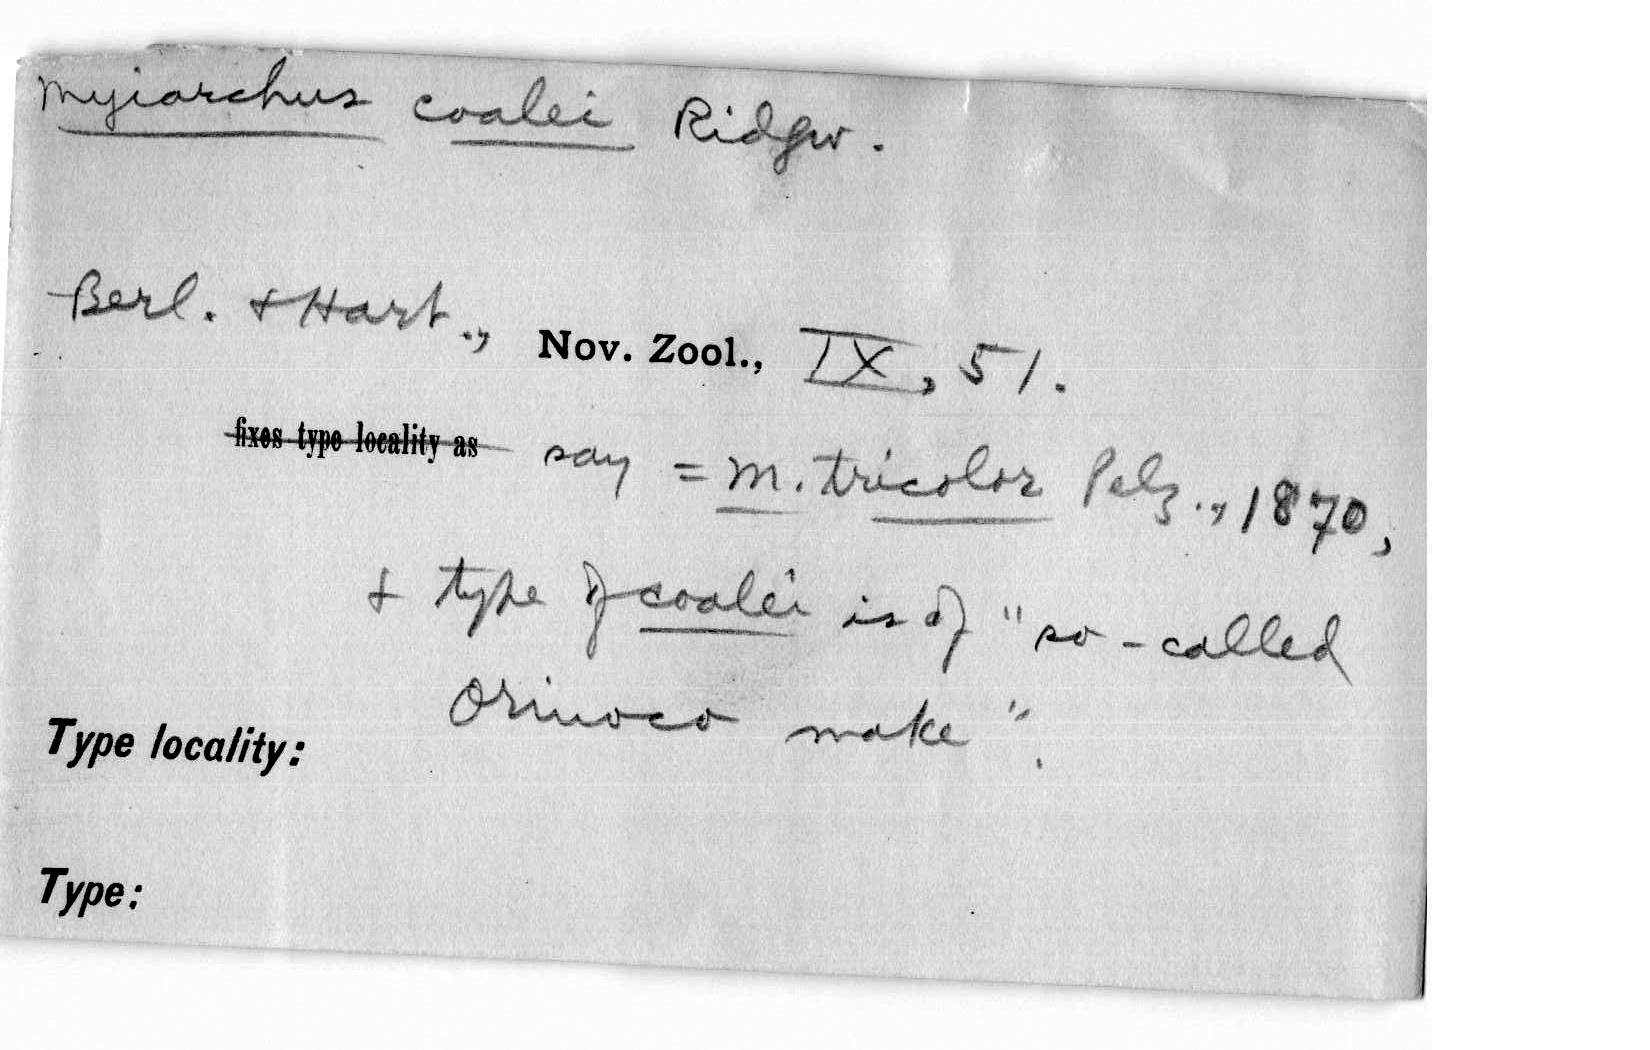 Myiarchus coalei Ridgw.
Berl. & Hart., Nov. Zool., IX, 51.
fixes type locality as say = M. tricolor Pelz., 1870,
& type of coalei is of "so-called
Orinoco make".
Type locality:
Type: